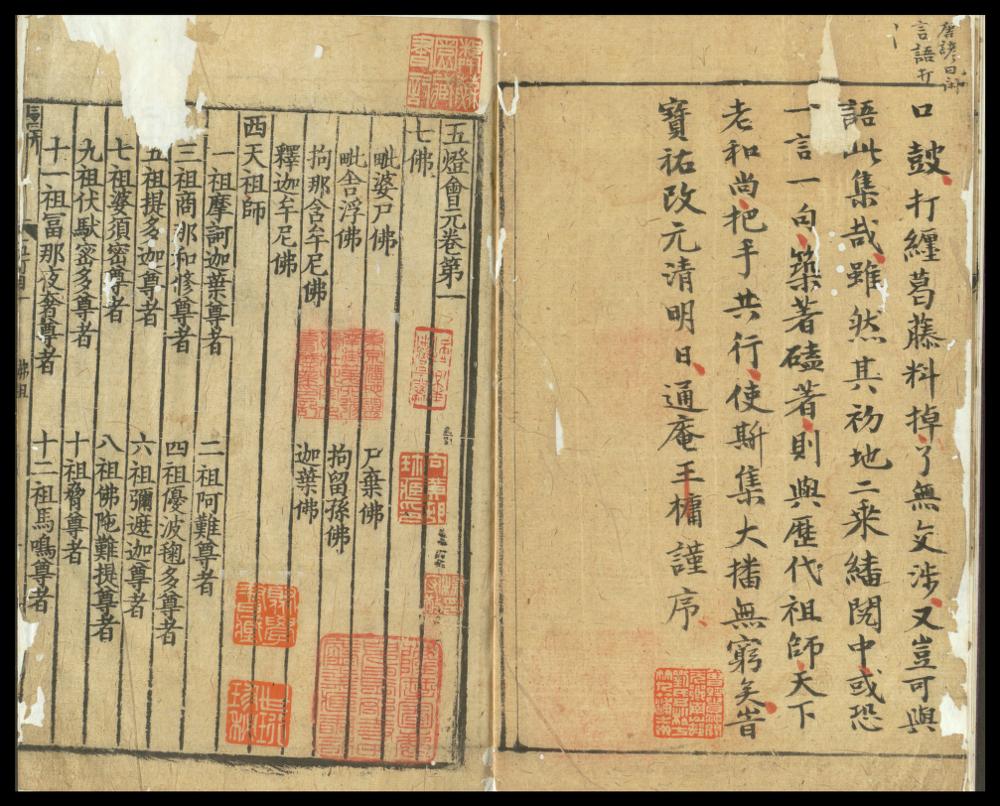 口鼓打纏葛藤料掉了無交涉又豈可與
語此集哉雖然其初地二乘繙閱中或恐
一言一句築著磕著則與歷代祖師天下
老和尚把手共行使斯集大播無窮矣旹
寶祐改元清明日通庵王槦謹序
五燈會元卷第一
七佛
毗婆尸佛 尸棄佛
毗舍浮佛 拘留孫佛
拘那含牟尼佛 迦葉佛
釋迦牟尼佛
西天祖師
一祖摩訶迦葉尊者 二祖阿難尊者
三祖商那和修尊者 四祖優波毱多尊者
五祖提多迦尊者 六祖彌遮迦尊者
七祖婆須密尊者 八祖佛陁難提尊者
九祖伏馱密多尊者 十祖脅尊者
十一祖冨那夜奢尊者 十二祖馬鳴尊者